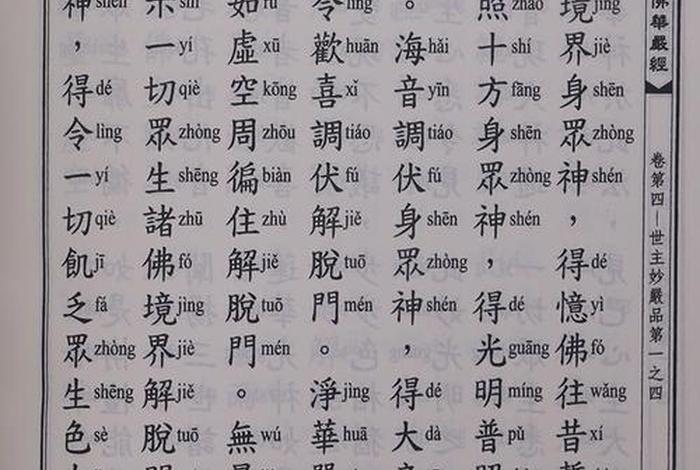 佛華嚴經
卷第四－世主妙嚴品第一之四
境jìng界jiè身shēn眾zhòng神shén，得dé憶yì佛fó往wǎng昔xí
照zhào十shí方fāng身shēn眾zhòng神shén，得dé光guāng明míng普pǔ
。海hǎi音yīn調tiáo伏fú身shēn眾zhòng神shén，得dé大dà
令lìng歡huān喜xǐ調tiáo伏fú解jiě脫tuō門mén。淨jìng華huā
如rú虛xū空kōng周zhōu徧biàn住zhù解jiě脫tuō門mén。無wú
示shì一yí切qiè眾zhòng生shēng諸zhū佛fó境jìng界jiè解jiě脫tuō
神shén，得dé令lìng一yí切qiè飢jī乏fá眾zhòng生shēng色sè